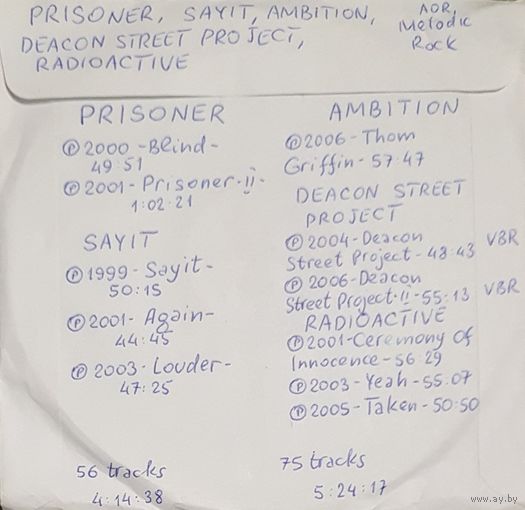 PRISONER, SAYIT, AMBITION,
DEACON STREET PROJECT,
RADIOACTIVE
AOR,
Melodic
Rock
PRISONER
Ⓟ2000-Blind-
49:51
Ⓟ2001-Prisoner·II-
1:02:21
SAYIT
Ⓟ1999-Sayit-
50:15
Ⓟ2001-Again-
44:45
Ⓟ2003-Louder-
47:25
56 tracks
4:14:38
AMBITION
Ⓟ2006-Thom
Griffin-57:47
DEACON STREET
PROJECT
Ⓟ2004-Deacon VBR
Street Project-48:43
Ⓟ2006-Deacon
Street Project·II-55:13 VBR
RADIOACTIVE
Ⓟ2001-Ceremony of
Innocence-56:29
Ⓟ2003-Yeah-55:07
Ⓟ2005-Taken-50:50
75 tracks
5:24:17
www.ay.by